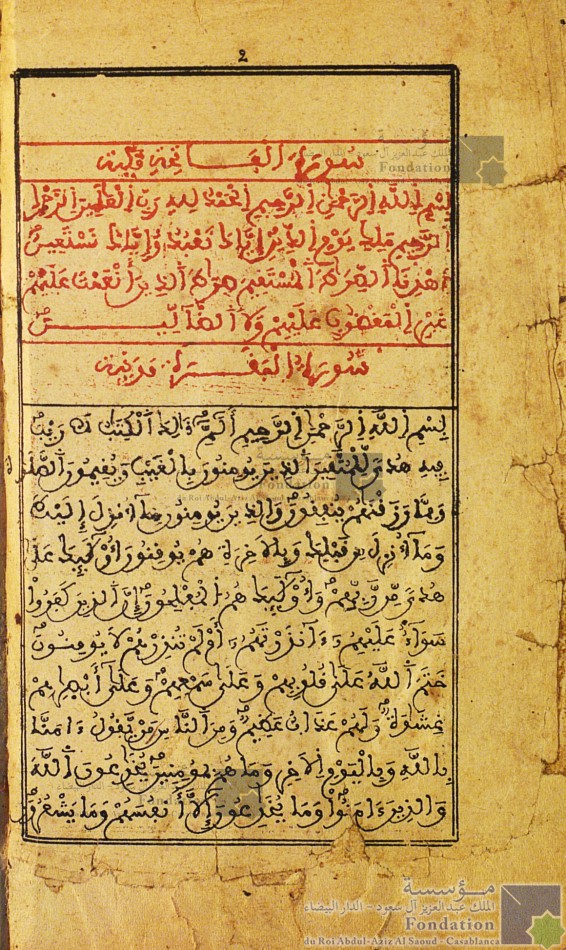 2
سورة الفاتحة مكية
بسم الله الرحمن الرحيم الحمد لله رب العلمين الرحمن
الرحيم ملك يوم الدين إياك نعبد وإياك نستعين
اهدنا الصراط المستقيم صراط الذين أنعمت عليهم
غير المغضوب عليهم ولا الضآلين
سورة البقرة مدنية
بسم الله الرحمن الرحيم ألم ذلك الكتب لا ريب
فيه هدى للمتقين الذين يومنون بالغيب ويقيمون الصلوة
ومما رزقنهم ينفقون والذين يومنون بمآ أنزل إليك
ومآ أنزل من قبلك وبالاخرة هم يوقنون أولئك على
هدى من ربهم وأولئك هم المفلحون إن الذين كفروا
سوآء عليهم ءآنذرتهم أم لم تنذرهم لا يومنون
ختم الله على قلوبهم وعلى سمعهم وعلى أبصرهم
غشوة ولهم عذاب عظيم ومن الناس من يقول ءامنا
بالله وباليوم الاخر وما هم بمومنين يخدعون الله
والذين ءامنوا وما يخدعون إلآ أنفسهم وما يشعرون
مؤسسة
الملك عبد العزيز آل سعود - الدار البيضاء
Fondation
du Roi Abdul-Aziz Al Saoud - Casablanca